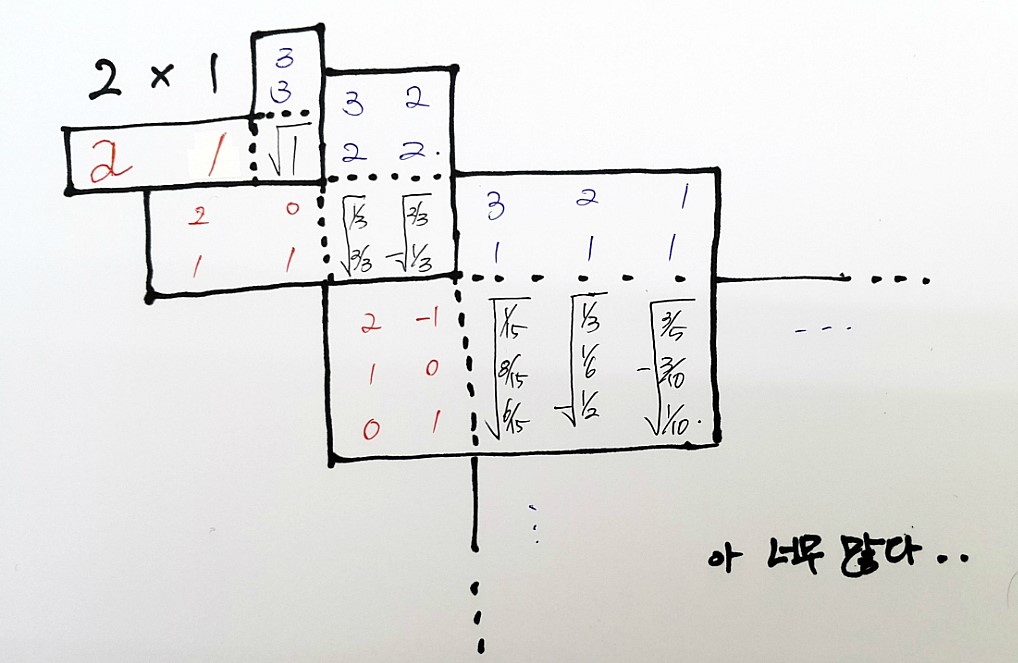 2 × 1
3
3
2 1 √1
3 2
2 2.
2 0 √1/3 √2/3
1 1 √2/3 -√1/3
3 2 1
1 1 1
2 -1 √1/15 √1/3 √3/5
1 0 8/15 1/6 - 3/10
0 1 6/15 - 1/2 1/10.
아 너무 많다..